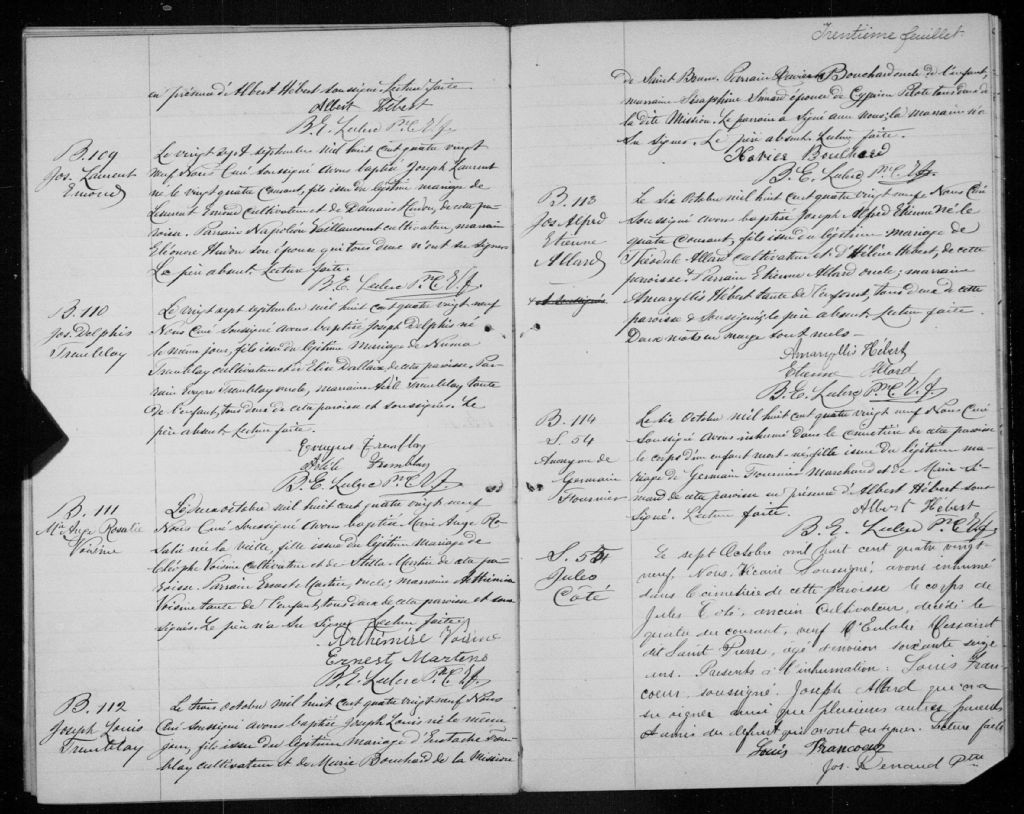 en présence d'Albert Hébert soussigné. Lecture faite.
Albert Hébert
B. E. Leclerc Ptre C. V. f.
B. 109
Jos. Laurent
Emond
Le vingt sept septembre mil huit cent quatre vingt
neuf Nous Curé soussigné avons baptisé Joseph Laurent
né le vingt quatre courant, fils issu du légitime mariage de
Laurent Emond cultivateur et de Damaris Hudon, de cette pa-
roisse. Parrain Napoléon Vaillancourt cultivateur, marraine
Eléonore Hudon son épouse qui tous deux n'ont su signer
Le père absent. Lecture faite.
B. E. Leclerc Ptre C. V. f.
B. 110
Jos. Delphis
Tremblay
Le vingt sept septembre mil huit cent quatre vingt neuf
Nous Curé soussigné avons baptisé Joseph Delphis né
le même jour, fils issu du légitime mariage de Numa
Tremblay cultivateur et d'Elise Dallaire de cette paroisse. Par-
rain Tremblay oncle, marraine Tremblay tante
de l'enfant, tous deux de cette paroisse et soussignés. Le
père absent. Lecture faite.
Tremblay
Tremblay
B. E. Leclerc Ptre C. V. f.
B. 111
Mie Ange Rosalie
Voisine
Le deux octobre mil huit cent quatre vingt neuf
Nous Curé soussigné avons baptisé Marie Ange Ro-
salie née la veille, fille issue du légitime mariage de
Cléophe Voisine cultivateur et de Stella Martin de cette pa-
roisse. Parrain Ernest Martin, oncle; marraine Arthémise
Voisine tante de l'enfant, tous deux de cette paroisse et sous-
signés. Le père n'a su signer. Lecture faite.
Arthémise Voisine
Ernest Martens
B. E. Leclerc Ptre C. V. f.
B. 112
Joseph Louis
Tremblay
Le trois octobre mil huit cent quatre vingt neuf Nous
Curé soussigné avons baptisé Joseph Louis né le même
jour, fils issu du légitime mariage d'Eustache Trem-
blay cultivateur et de Marie Bouchard de la Mission
Trentième feuillet
de Saint Bruno. Parrain Xavier Bouchard oncle de l'enfant,
marraine Séraphine Simard épouse de Cyprien Pilote tous deux de
la dite Mission. Le parrain a signé avec nous; la marraine n'a
su signer. Le père absent. Lecture faite.
Xavier Bouchard
B. E. Leclerc Ptre C. V. f.
B. 113
Jos. Alfred
Etienne
Allard
Le six Octobre mil huit cent quatre vingt neuf Nous Curé
soussigné avons baptisé Joseph Alfred Etienne né le
quatre courant, fils issu du légitime mariage de
Théodule Allard cultivateur et d'Hélène Hébert, de cette
paroisse. Parrain Etienne Allard oncle; marraine
Amaryllis Hébert tante de l'enfant, tous deux de cette
paroisse & soussignés; le père absent. Lecture faite.
Deux mots en marge sont nuls.
Amaryllis Hébert
Etienne Allard
B. E. Leclerc Ptre C. V. f.
B. 114
S. 54
Anonyme de
Germain
Fournier
Le six Octobre mil huit cent quatre vingt neuf Nous Curé
soussigné avons inhumé dans le cimetière de cette paroisse
le corps d'un enfant mort-né, fille issue du légitime ma-
riage de Germain Fournier Marchand et de Marie Si-
mard de cette paroisse en présence d'Albert Hébert sous-
signé. Lecture faite.
Albert Hébert
B. E. Leclerc Ptre C. V. f.
S. 55
Jules
Coté
Le sept Octobre mil huit cent quatre vingt-
neuf, Nous, Vicaire soussigné, avons inhumé
dans le cimetière de cette paroisse le corps de
Jules Coté, ancien cultivateur, décédé le
quatre du courant, veuf d'Eulalie Dessaint
dit Saint Pierre, agé d'environ soixante seize
ans. Présents à l'inhumation: Louis Fran-
coeur, soussigné. Joseph Allard qui n'a
su signer ainsi que plusieurs autres parents
et amis du défunt qui n'ont su signer. Lecture faite
Louis Francoeur
Jos. Renaud Ptre